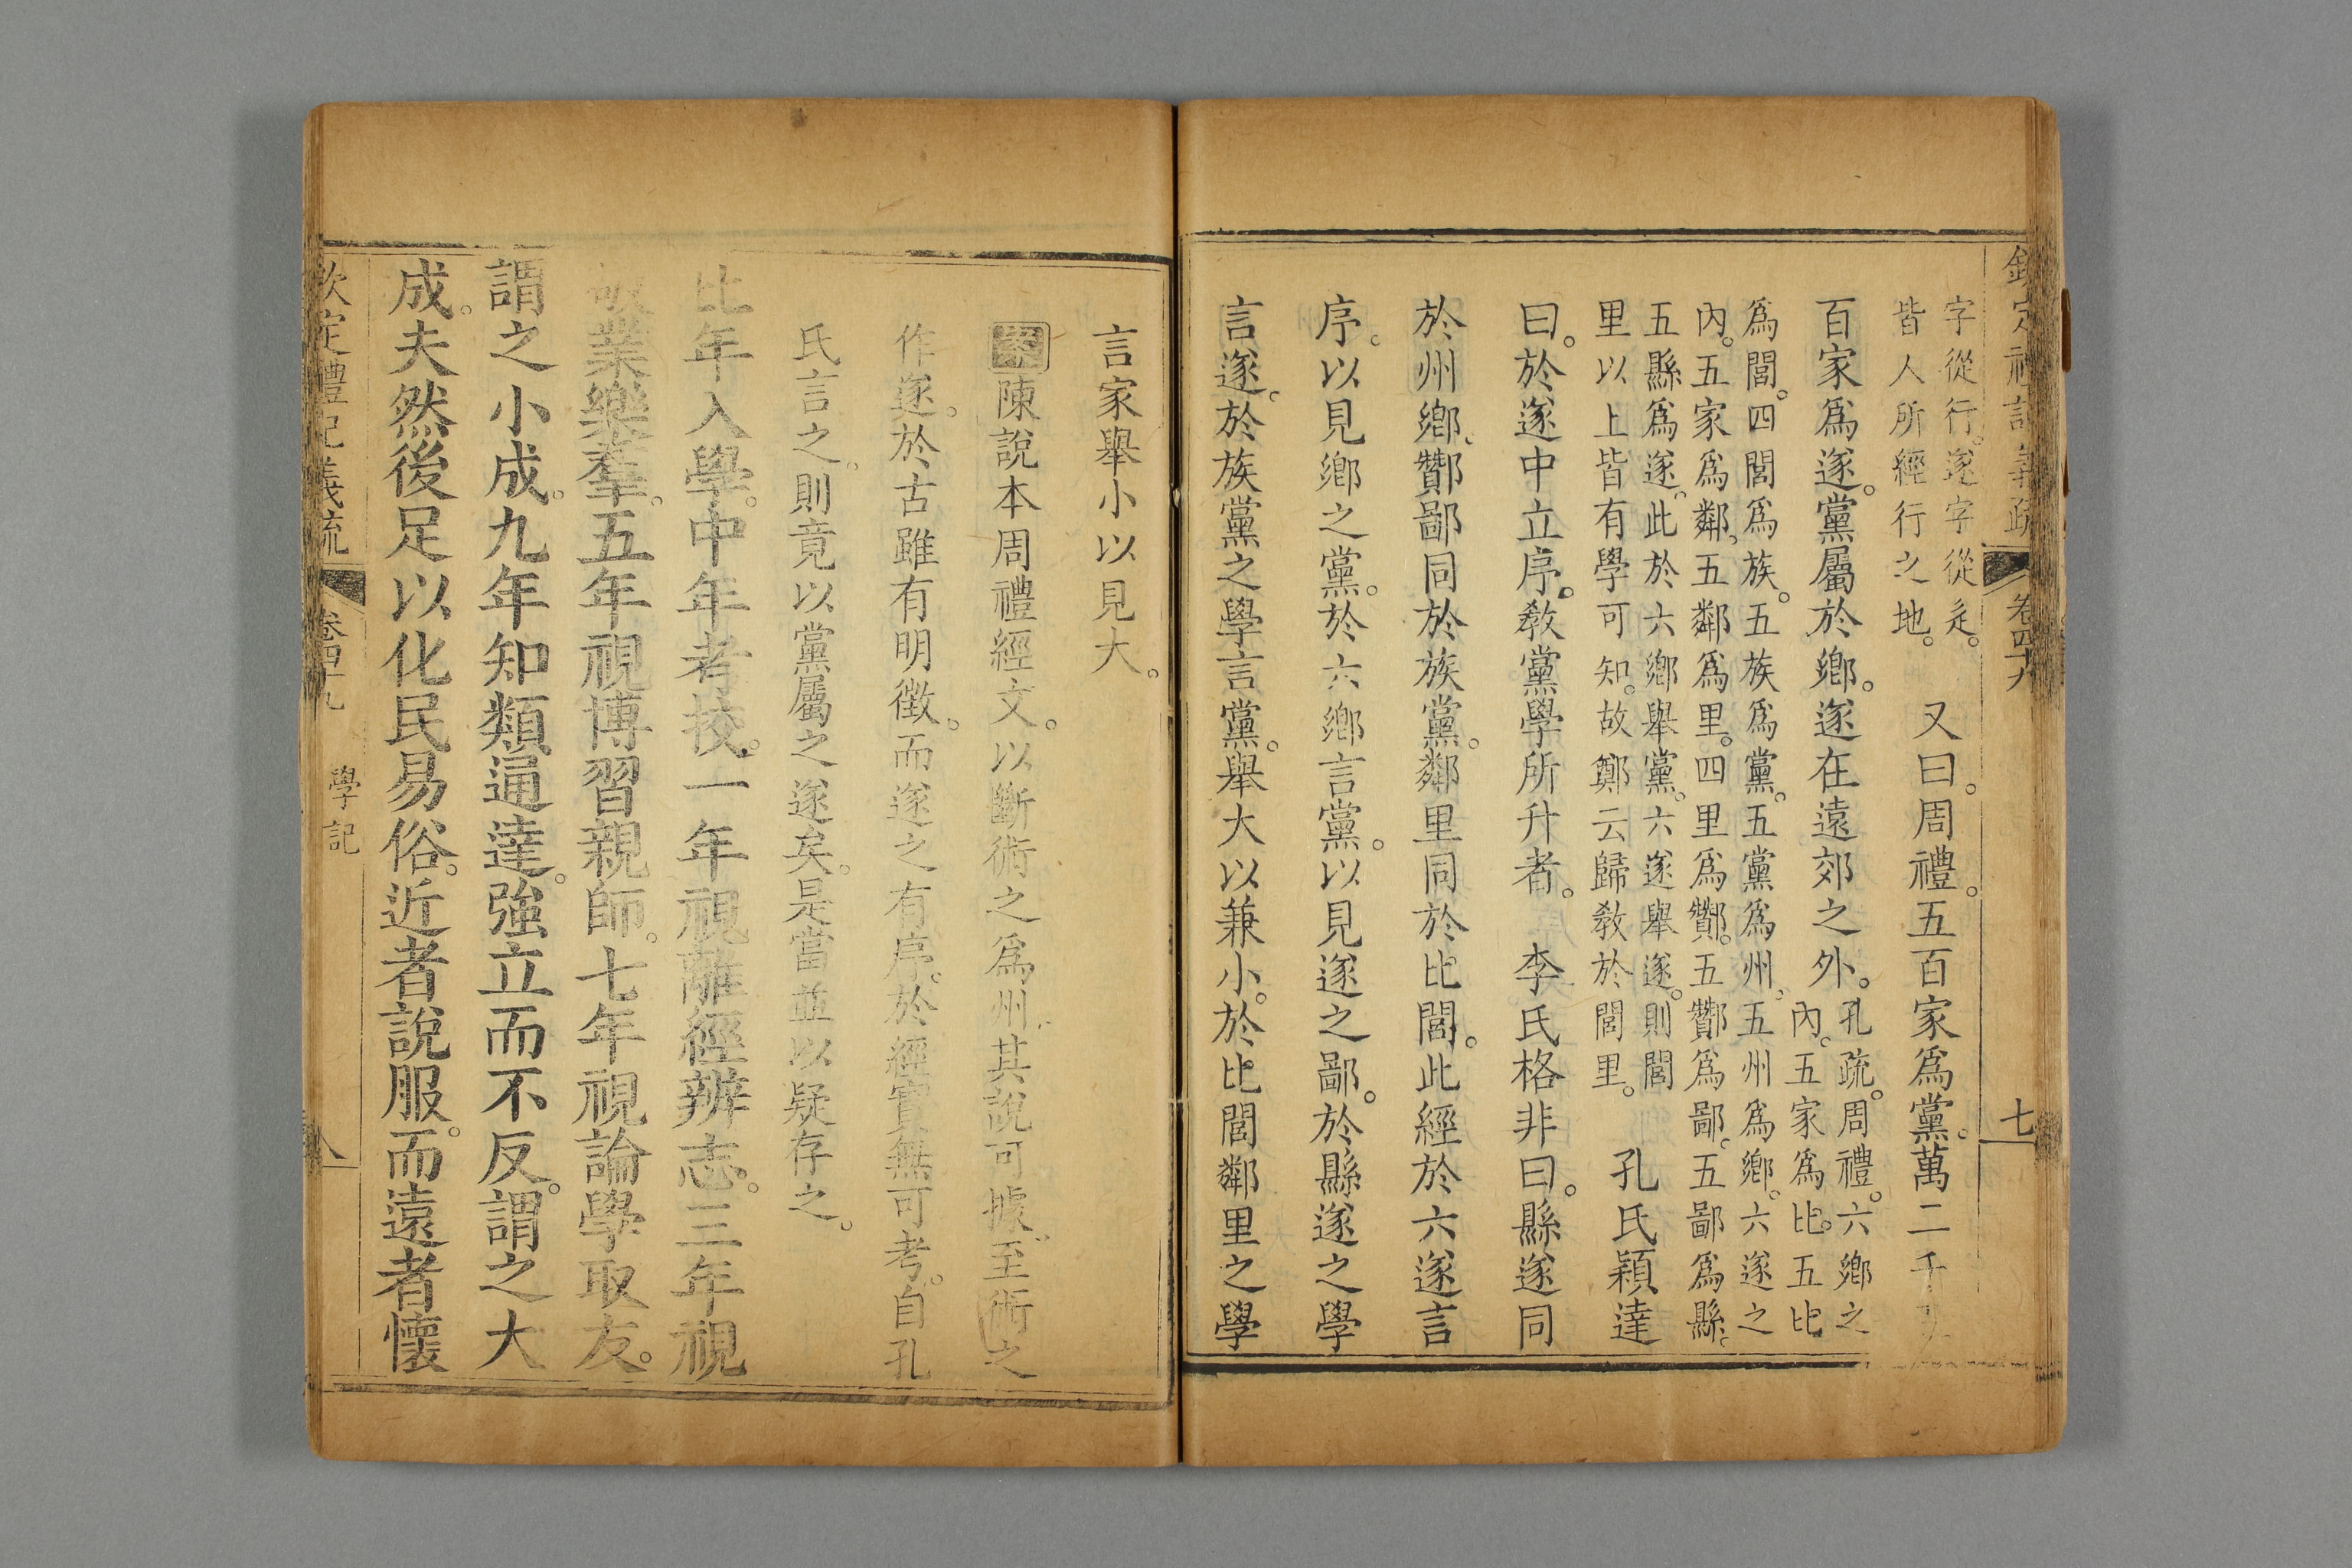 欽定禮記義疏 卷四十九 七
字從行。遂字從辵。
皆人所經行之地。
又曰。周禮。五百家爲黨。萬二千五
百家爲遂。黨屬於鄉。遂在遠郊之外。
孔疏。周禮。六鄉之
內。五家爲比。五比
爲閭。四閭爲族。五族爲黨。五黨爲州、五州爲鄉。六遂之
內。五家爲鄰、五鄰爲里。四里爲酇。五酇爲鄙。五鄙爲縣。
五縣爲遂。此於六鄉舉黨。六遂舉遂。則閭
里以上皆有學可知。故鄭云歸教於閭里。
孔氏穎達
曰。於遂中立序。教黨學所升者。 李氏格非曰。縣遂同
於州鄉、酇鄙同於族黨。鄰里同於比閭。此經於六遂言
序。以見鄉之黨。於六鄉言黨。以見遂之鄙。於縣遂之學
言遂。於族黨之學言黨。舉大以兼小。於比閭鄰里之學
言家舉小以見大。
案陳說本周禮經文。以斷術之爲州、其說可據、至術之
作遂。於古雖有明徵。而遂之有序。於經實無可考。自孔
氏言之。則竟以黨屬之遂矣。是當並以疑存之。
比年入學。中年考校。一年視離經辨志。三年視
敬業樂羣。五年視博習親師。七年視論學取友。
謂之小成。九年知類通達。強立而不反。謂之大
成。夫然後足以化民易俗。近者說服。而遠者懷
欽定禮記義疏 卷四十九 學記 八